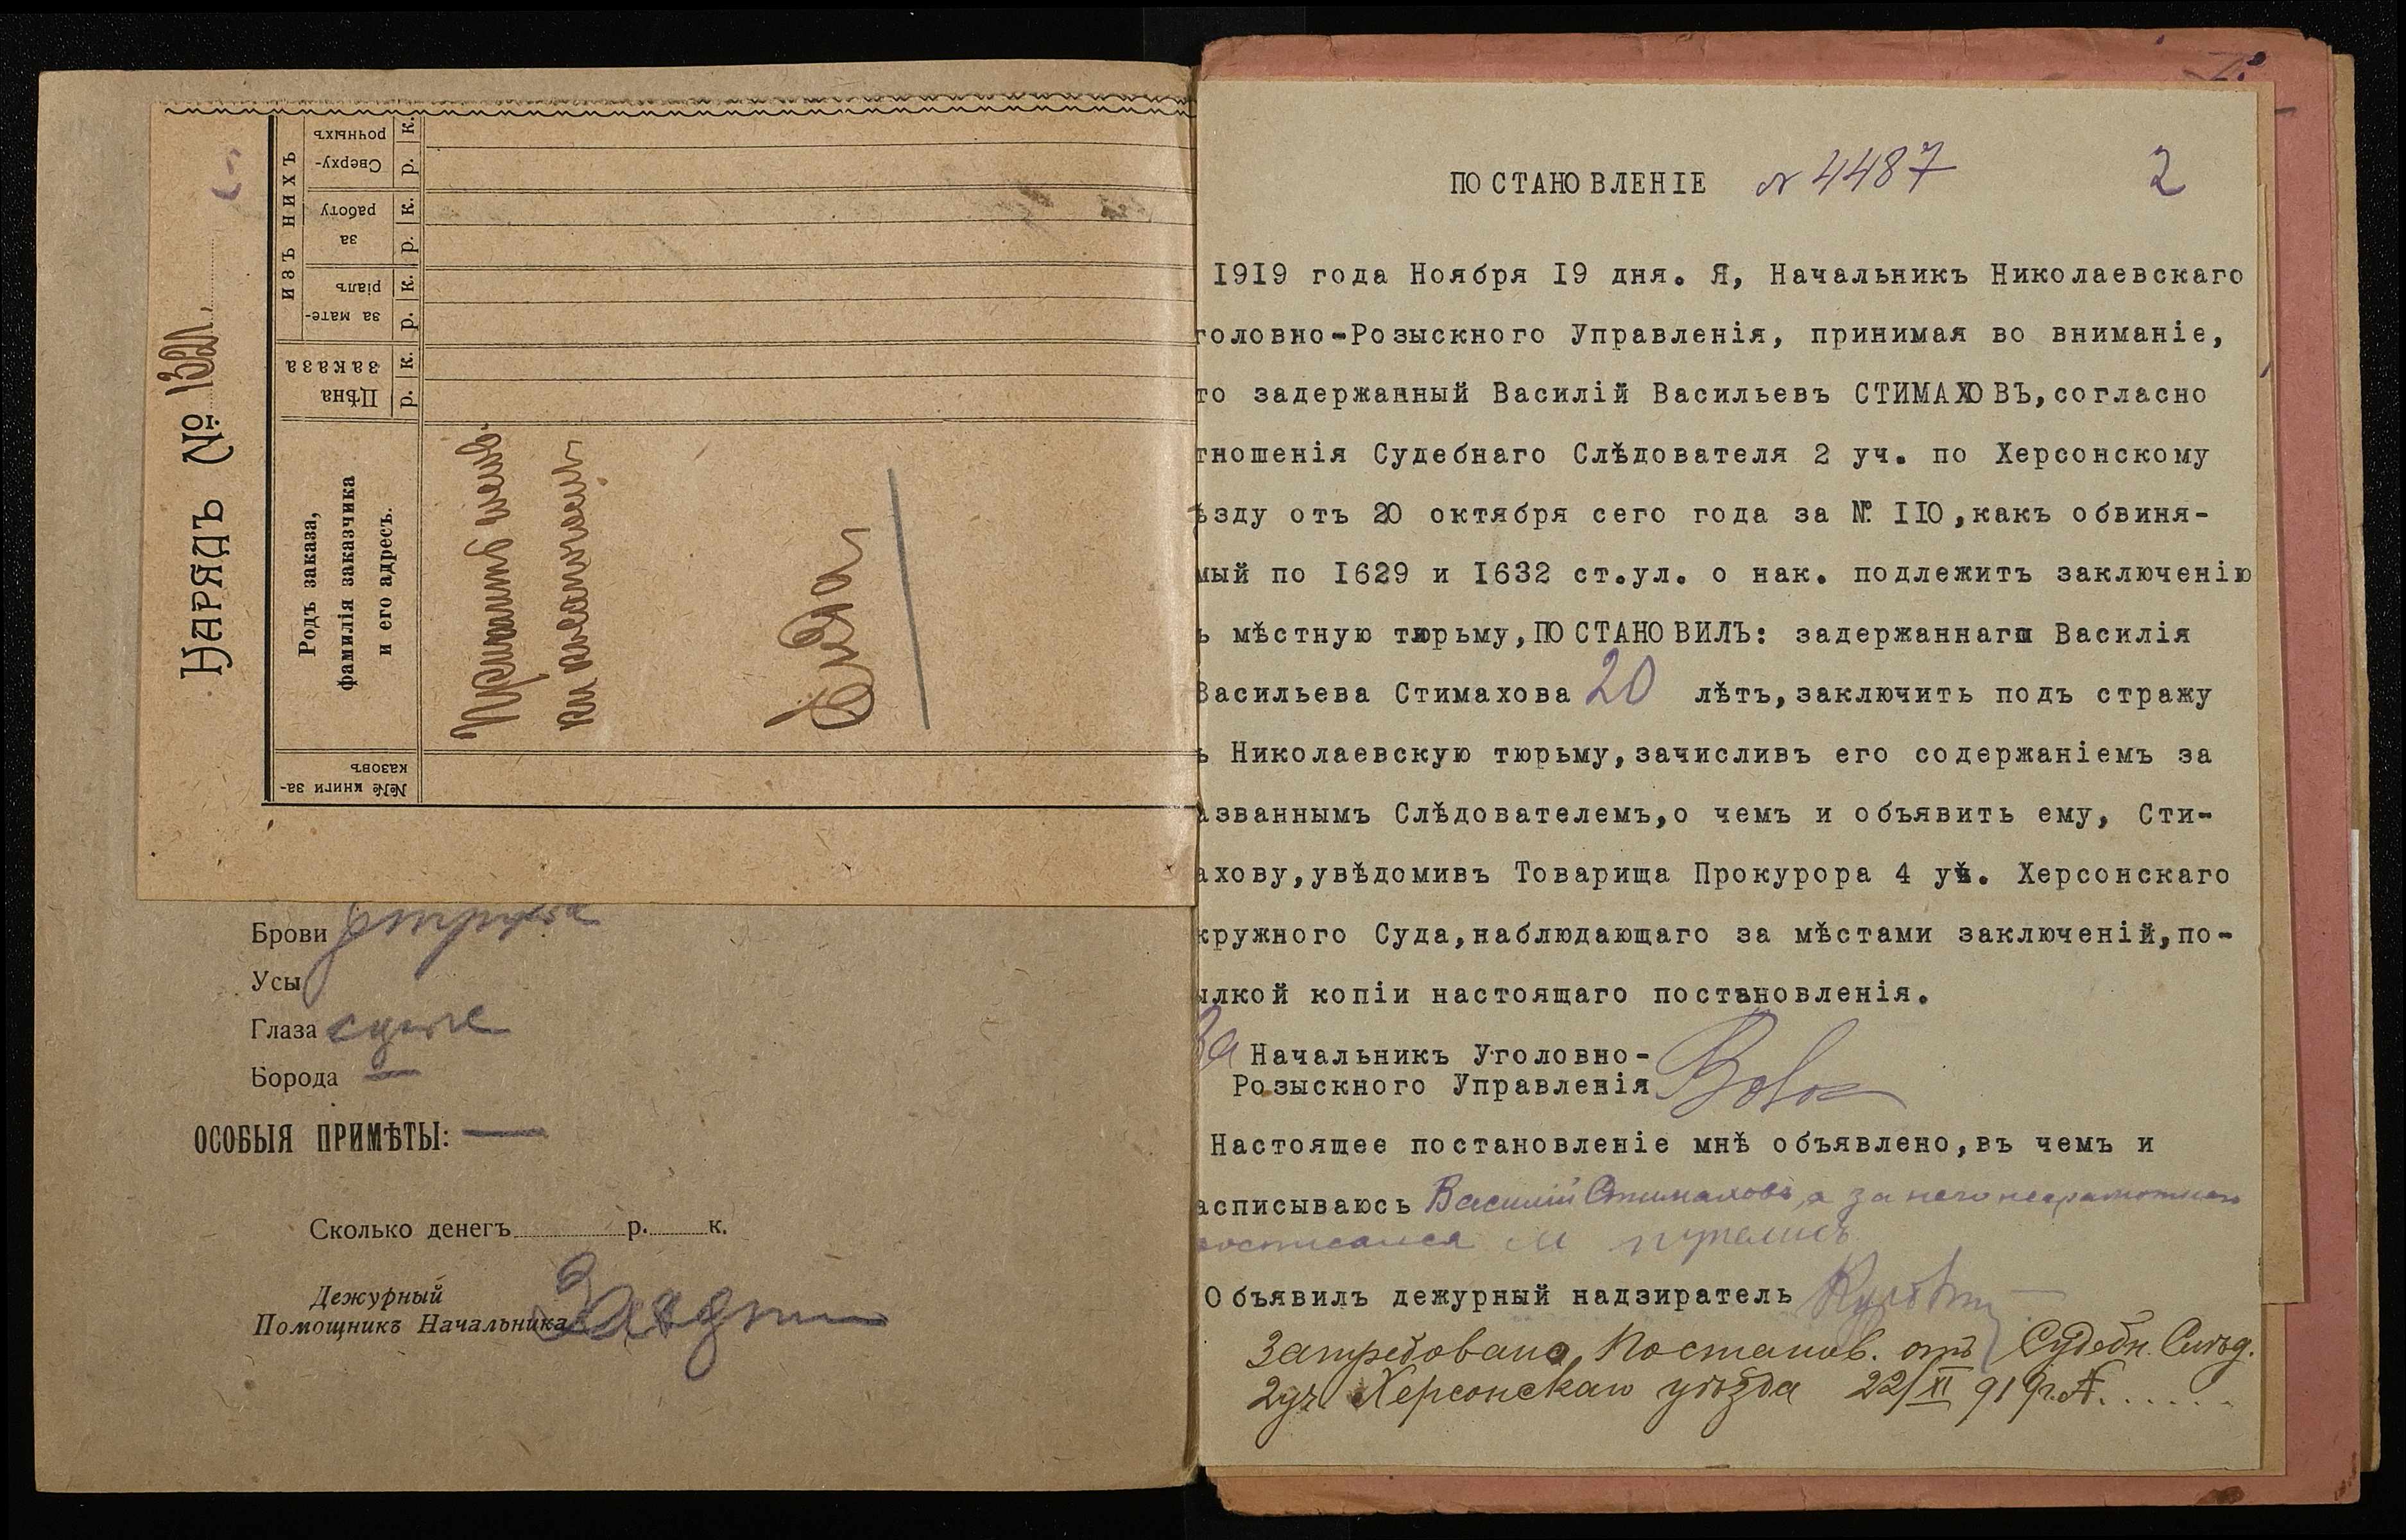 НАРЯДЪ № 1321
№№ книги за-
казовъ
Родъ заказа,
фамилія заказчика
и его адресъ.
Цѣна
заказа
р. к.
ИЗЪ НИХЪ
за мате-
ріалъ
р. к.
за
работу
р. к.
Сверху-
рочныхъ
р. к.
Брови
Усы
Глаза
Борода —
ОСОБЫЯ ПРИМѢТЫ: —
Сколько денегъ р. к.
Дежурный
Помощникъ Начальника
ПОСТАНОВЛЕНІЕ № 4487 2
1919 года Ноября 19 дня. Я, Начальникъ Николаевскаго
головно-Розыскного Управленія, принимая во вниманіе,
то задержанный Василій Васильевъ СТИМАХОВЪ, согласно
тношенія Судебнаго Слѣдователя 2 уч. по Херсонскому
ѣзду отъ 20 октября сего года за № 110, какъ обвиня-
мый по 1629 и 1632 ст. ул. о нак. подлежитъ заключенію
ъ мѣстную тюрьму, ПОСТАНОВИЛЪ: задержаннаго Василія
Васильева Стимахова 20 лѣтъ, заключить подъ стражу
ъ Николаевскую тюрьму, зачисливъ его содержаніемъ за
азваннымъ Слѣдователемъ, о чемъ и объявить ему, Сти-
ахову, увѣдомивъ Товарища Прокурора 4 уч. Херсонскаго
кружного Суда, наблюдающаго за мѣстами заключеній, по-
ылкой копіи настоящаго постановленія.
За Начальникъ Уголовно-
Розыскного Управленія
Настоящее постановленіе мнѣ объявлено, въ чемъ и
асписываюсь Василій Стимаховъ, а за него неграмотнаго
росписался М
Объявилъ дежурный надзиратель
Затребовано, Постанов. отъ Судебн. Слѣд.
2 уч. Херсонскаго уѣзда 22/XI 919 г.